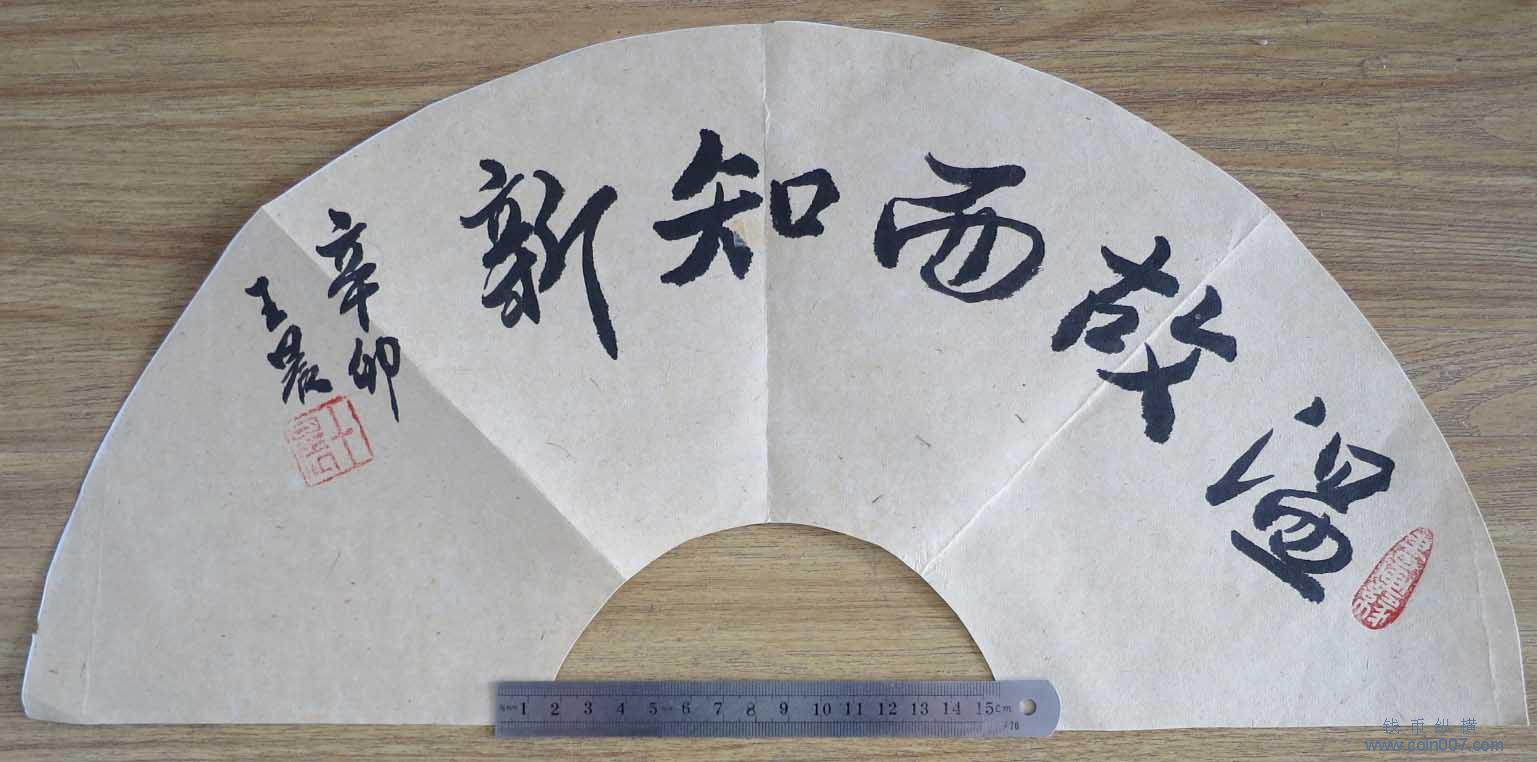 温故而知新
辛卯
王晨
mm 1 2 3 4 5 6 7 8 9 10 11 12 13 14 15cm
钱币纵横
www.coin007.com